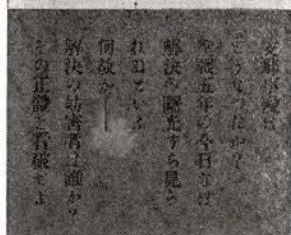 支那事變は
どうなつたか？
聖戰五年の今日なほ
解決の曙光すら見ら
れぬといふ
何故か——
解決の妨害者は誰か？
その正體を看破せよ